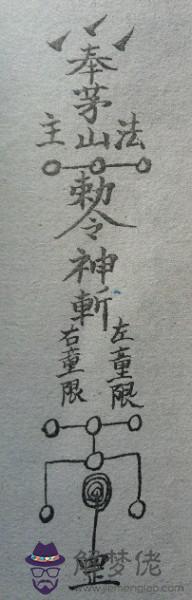 奉
茅
主山法
勅令
神
斬
右童限
左童限
罡
解梦佬
www.jiemenglap.com